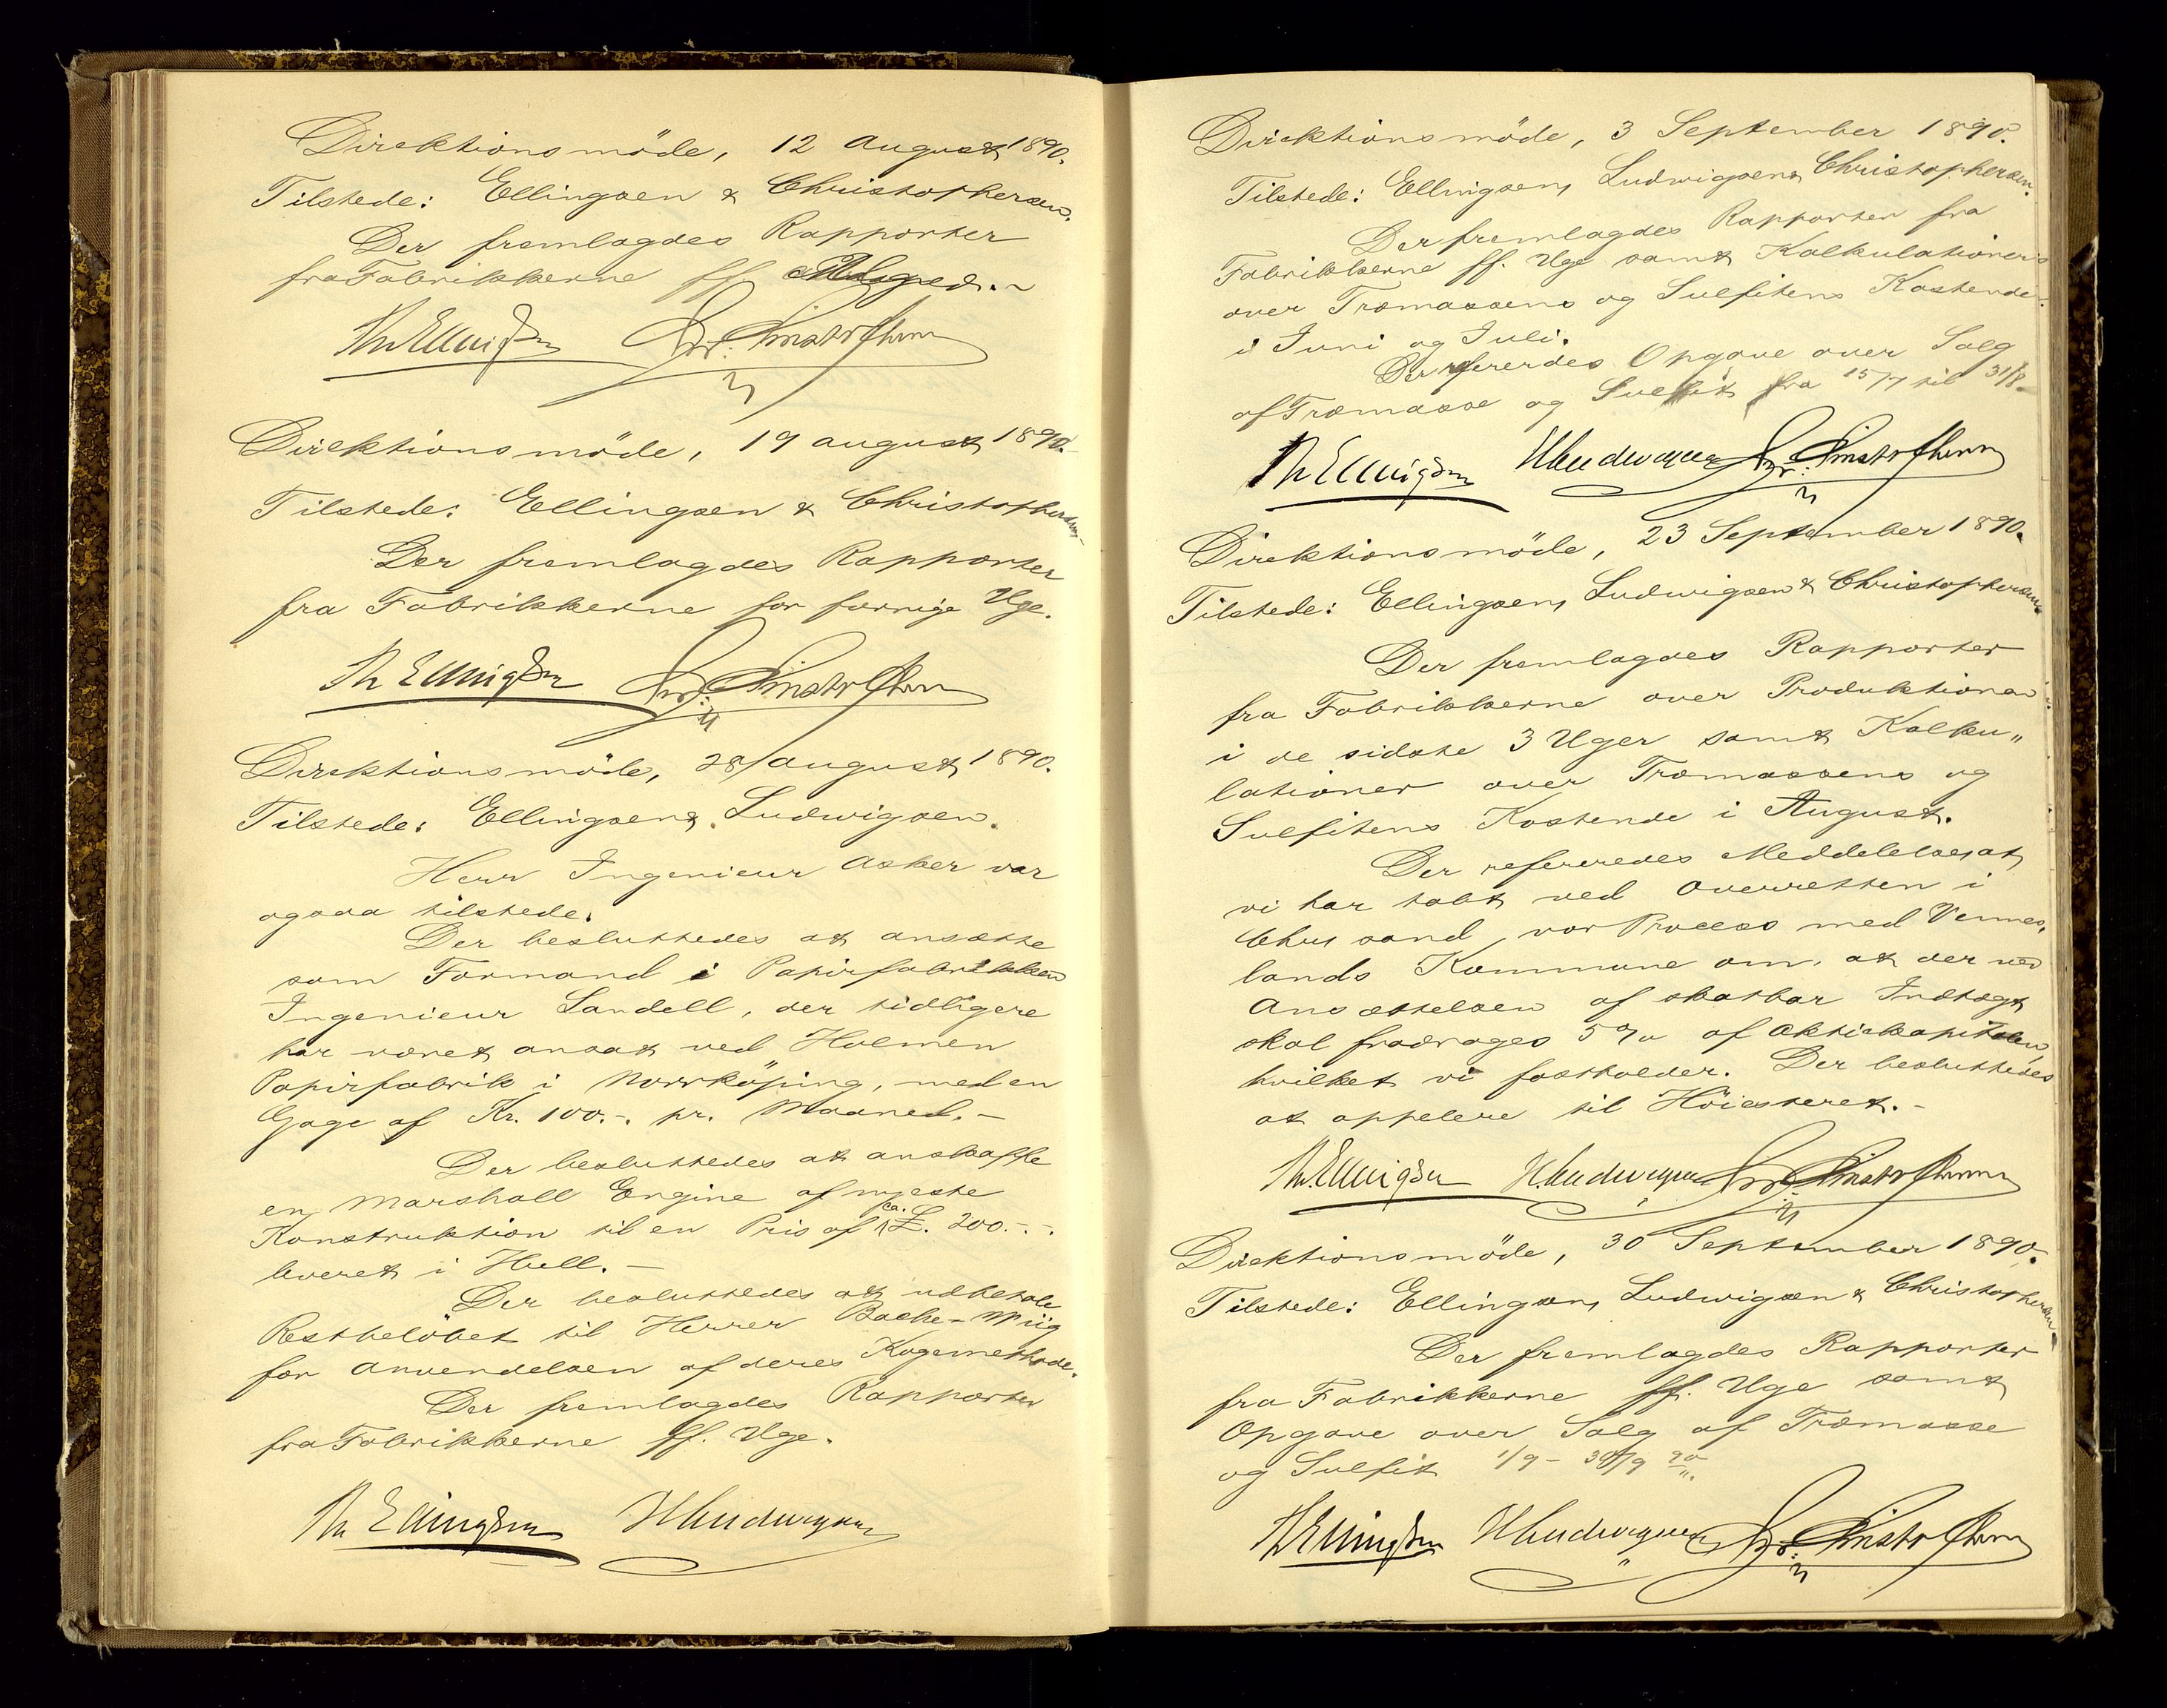 Direktionsmöde, 12 August 1890.
Tilstede: Ellingsen & Christophersen.
Der fremlagdes Rapporter
fra Fabrikkerne ff.
Th Ellingsen Chr. Christophersen
Direktionsmöde, 19 August 1890.
Tilstede: Ellingsen & Christophersen
Der fremlagdes Rapporter
fra Fabrikkerne for forrige Uge.
Th Ellingsen Chr. Christophersen
Direktionsmöde, 28 August 1890.
Tilstede: Ellingsen & Ludwigsen.
Herr Ingenieur Asker var
ogsaa tilstede.
Der besluttedes at ansætte
som Formand i Papirfabrikken
Ingenieur Sandell, der tidligere
har været ansat ved Holmen
Papirfabrik i Norrköping, med en
Gage af Kr. 100.-. pr. Maaned.-
Der besluttedes at anskaffe
en Marshall Engine af nyeste
Konstruktion til en Pris af ca. £. 200.-.-.
leveret i Hull.-
Der besluttedes at udbetale
Restbelöbet til Herrer Bache-Wiig
for Anvendelsen af deres Kogemethode.
Der fremlagdes Rapporter
fra Fabrikkerne ff. Uge.
Th Ellingsen H Ludwigsen
Direktionsmöde, 3 September 1890.
Tilstede: Ellingsen, Ludwigsen & Christophersen.
Der fremlagdes Rapporter fra
Fabrikkerne ff. Uge samt Kalkulationer
over Træmassens og Sulfitens Kostende
i Juni og Juli.
Der refereredes Opgave over Salg
af Træmasse og Sulfit fra 15/7 til 31/8.
Th Ellingsen H Ludwigsen Chr. Christophersen
Direktionsmöde, 23 September 1890.
Tilstede: Ellingsen, Ludwigsen & Christophersen
Der fremlagdes Rapporter
fra Fabrikkerne over Produktionen
i de sidste 3 Uger samt Kalku„
lationer over Træmassens og
Sulfitens Kostende i August.
Der refereredes Meddelelse, at
vi har tabt ved Overretten i
Chrs sand vor Process med Vennes,
lands Kommune om, at der ved
Ansættelsen af skatbar Indtægt
skal fradrages 5% af Aktiekapitalen,
hvilket vi fastholder. Der besluttedes
at appelere til Höiesteret.-
Th. Ellingsen H. Ludwigsen Chr. Christophersen
Direktionsmöde, 30 September 1890.
Tilstede: Ellingsen, Ludwigsen & Christophersen
Der fremlagdes Rapporter
fra Fabrikkerne ff. Uge samt
Opgave over Salg af Træmasse
og Sulfit 1/9 - 30/9 90
Th Ellingsen H Ludwigsen Chr. Christophersen